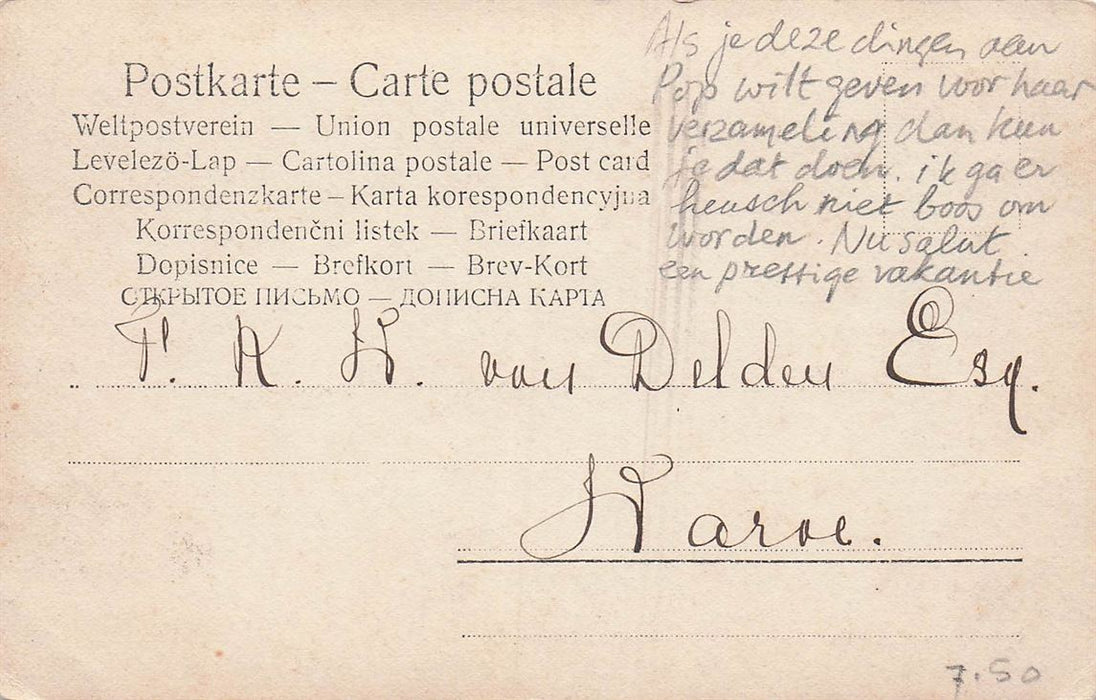 Postkarte – Carte postale
Weltpostverein — Union postale universelle
Levelezö-Lap — Cartolina postale — Post card
Correspondenzkarte – Karta korespondencyjna
Korrespondenčni listek — Briefkaart
Dopisnice — Brefkort — Brev-Kort
ОТКРЫТОЕ ПИСЬМО — ДОПИСНА КАРТА
Als je deze dingen aan
Pop wilt geven voor haar
verzameling dan kun
je dat doen. ik ga er
heusch niet boos om
worden. Nu salut
een prettige vakantie
K. W. van Delden Esq.
7.50